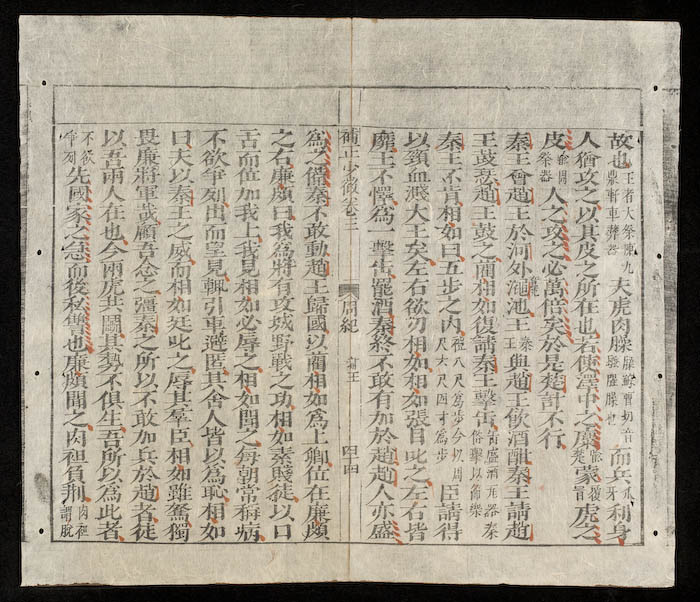 故也王者大祭陳九鼎軒車彝器夫虎肉臊臊蘇曹切音腥臊也而兵爪牙利身
人猶攻之以其皮之所在也若使澤中之麋蒙虎之
皮祭器人之攻之必萬倍矣於是楚計不行
秦王會趙王於河外澠池王秦王與趙王飲酒酣秦王請趙
王鼓瑟趙王鼓之藺相如復請秦王擊缶缶盛酒瓦器秦俗擊以節樂
秦王不肯相如曰五步之內禮八尺為步今以周尺六尺四寸為步臣請得
以頸血濺大王矣左右欲刃相如相如張目叱之左右皆
靡王不懌為一擊缶罷酒秦終不敢有加於趙趙人亦盛
補正少微卷三 周紀 赧王 四十四
為之備秦不敢動趙王歸國以藺相如為上卿位在廉頗
之右廉頗曰我為將有攻城野戰之功相如素賤徒以口
舌而位加我上我見相如必辱之相如聞之每朝常稱病
不欲爭列出而望見輒引車避匿其舍人皆以為恥相如
曰夫以秦王之威而相如廷叱之辱其羣臣相如雖駑獨
畏廉將軍哉顧吾念之彊秦之所以不敢加兵於趙者徒
以吾兩人在也今兩虎共鬬其勢不俱生吾所以為此者
不欲爭列先國家之急而後私讐也廉頗聞之肉袒負荊肉袒謂脫